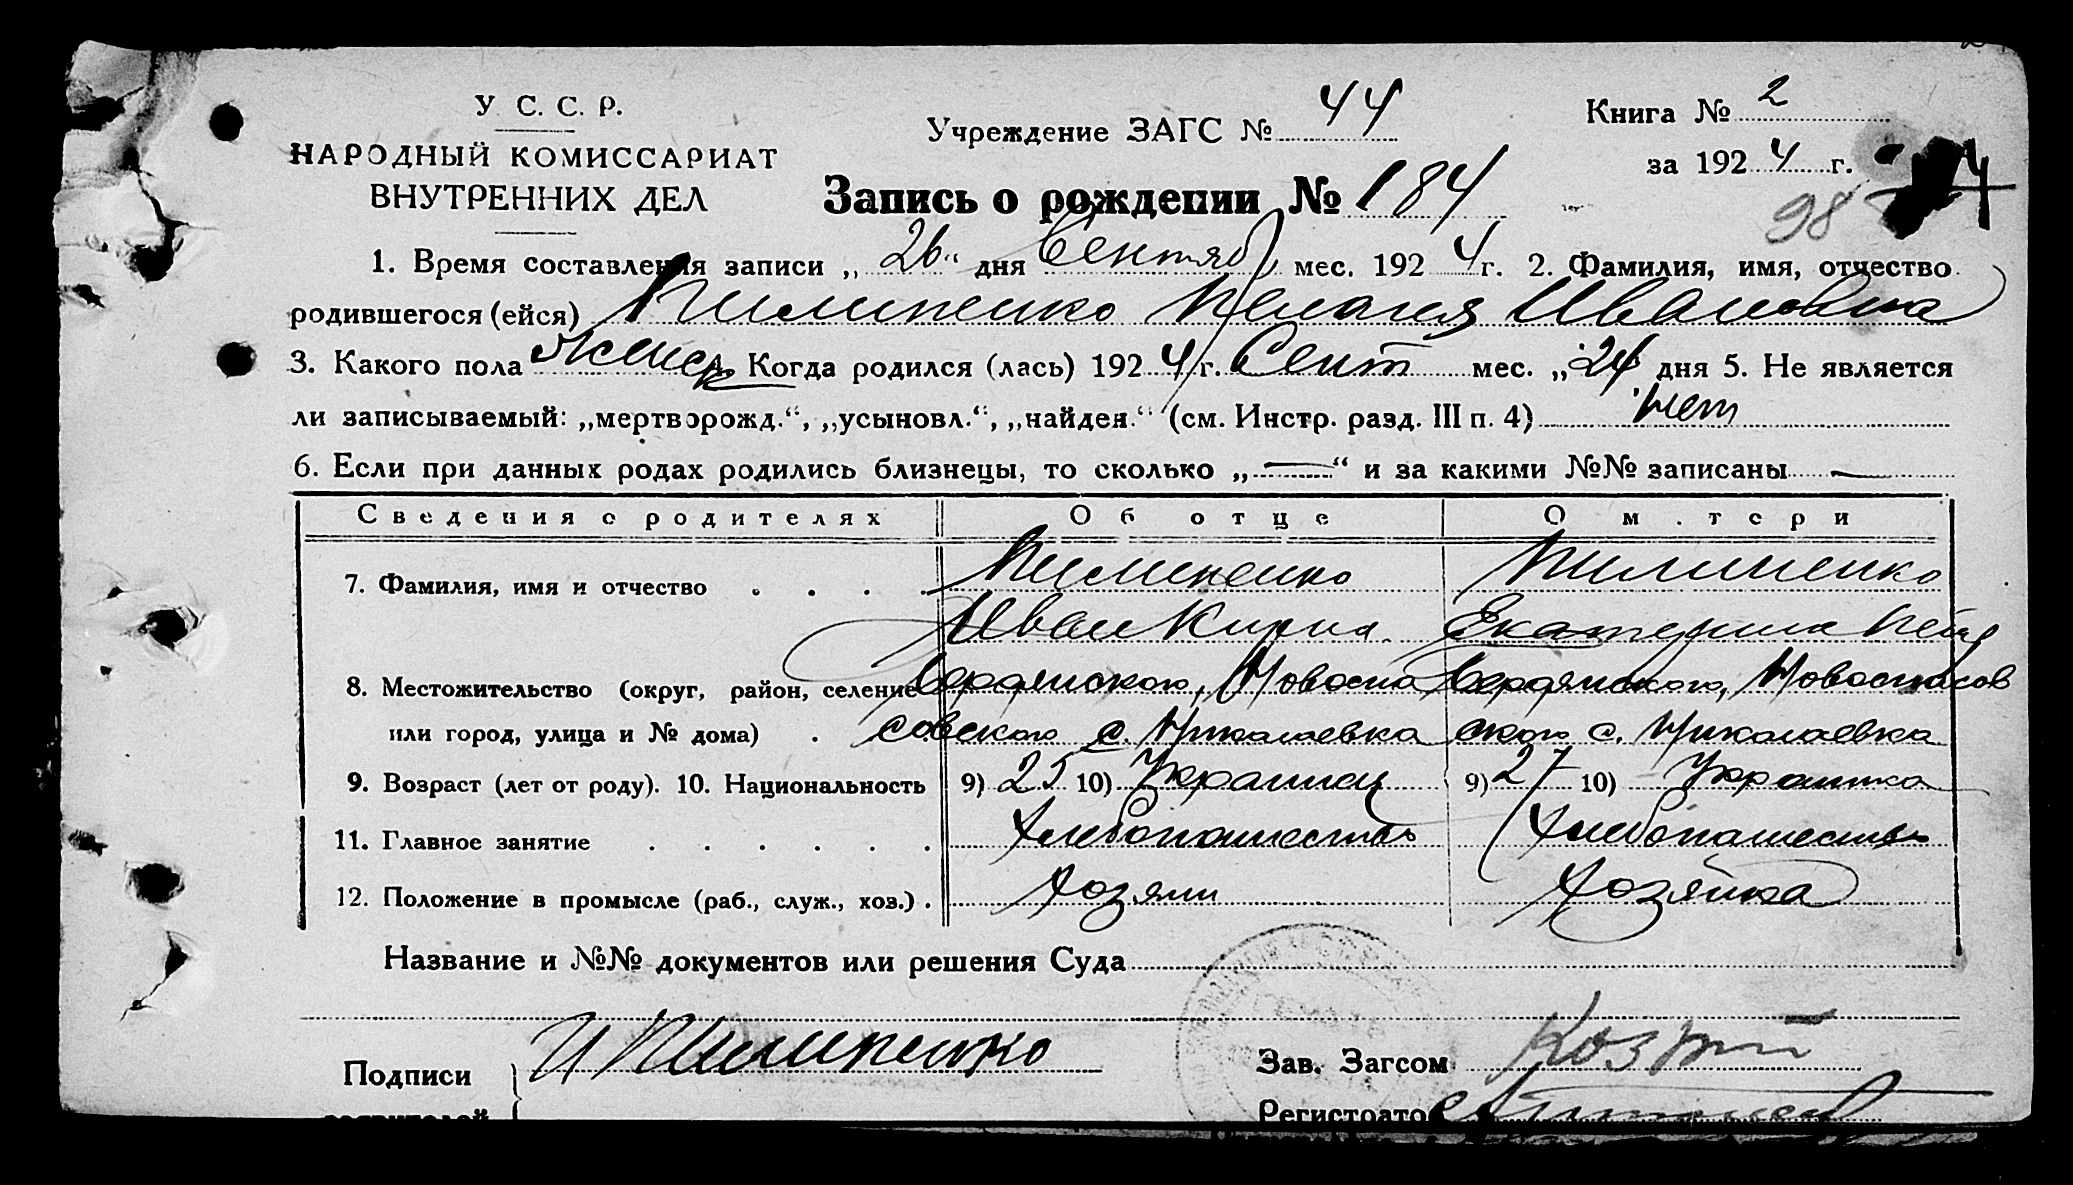 У. С. С. Р.
НАРОДНЫЙ КОМИССАРИАТ
ВНУТРЕННИХ ДЕЛ
Учреждение ЗАГС № 44
Книга № 2
за 1924 г.
98
Запись о рождении № 184
1. Время составления записи „26“ дня Сентяб мес. 1924 г. 2. Фамилия, имя, отчество
родившегося (ейся) Пилипенко Пелагия Ивановна
3. Какого пола женск 4. Когда родился (лась) 1924 г. Сент мес. „24 дня 5. Не является
ли записываемый: „мертворожд.“, „усыновл.“, „найден.“ (см. Инстр. разд. III п. 4) нет
6. Если при данных родах родились близнецы, то сколько „—“ и за какими №№ записаны —
Сведения о родителях Об отце О м.тери
7. Фамилия, имя и отчество Пилипенко Пилипенко
Иван Кирил. Екатерина Петр
8. Местожительство (округ, район, селение Бердянского, Новоспа Бердянского, Новоспасов
или город, улица и № дома) совского с. Николаевка ского с. Николаевка
9. Возраст (лет от роду). 10. Национальность 9) 25 10) Украинец 9) 27 10) Украинка
11. Главное занятие Хлебопашество Хлебопашество
12. Положение в промысле (раб., служ., хоз.) Хозяин Хозяйка
Название и №№ документов или решения Суда
Подписи И Пилипенко
Зав. Загсом
заявителей
Регистратор